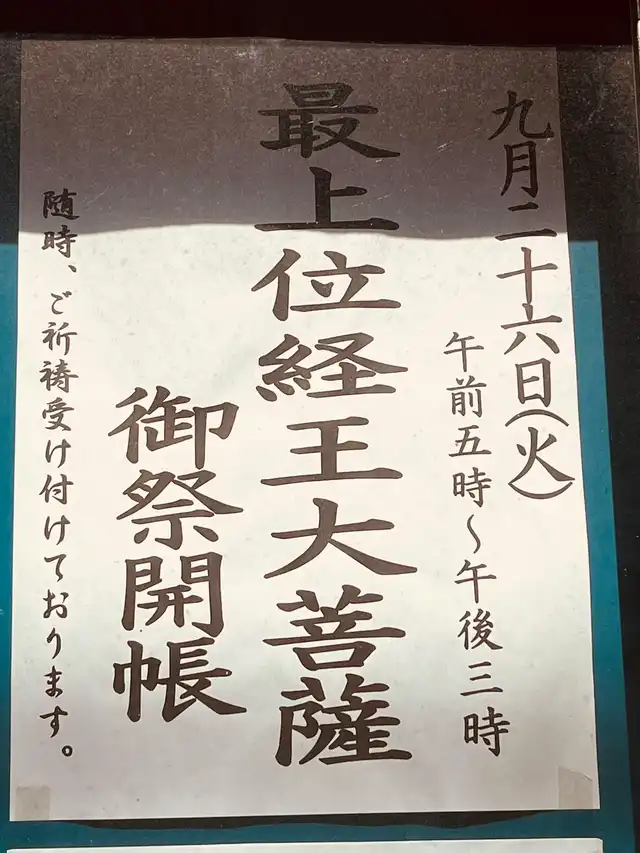 九月二十六日(火)
午前五時〜午後三時
最上位経王大菩薩
御祭開帳
随時、ご祈祷受け付けております。